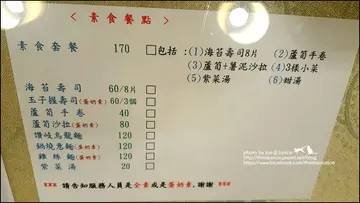 < 素食餐點 >
素食套餐 170 □包括:(1)海苔壽司8片 (2)蘆筍手卷
(3)蘆筍+薯泥沙拉(4)3樣小菜
(5)紫菜湯 (6)甜湯
海苔壽司 60/8片 □
玉子握壽司(蛋奶素) 60/3個 □
蘆筍手卷 40 □
蘆筍沙拉(蛋奶素) 80 □
讚岐烏龍麵 120 □
鍋燒意麵(蛋奶素) 120 □
雞絲麵(蛋奶素) 120 □
紫菜湯 20 □
*** 請告知服務人員是全素或是蛋奶素.謝謝 ***
photo by Joe & Janice